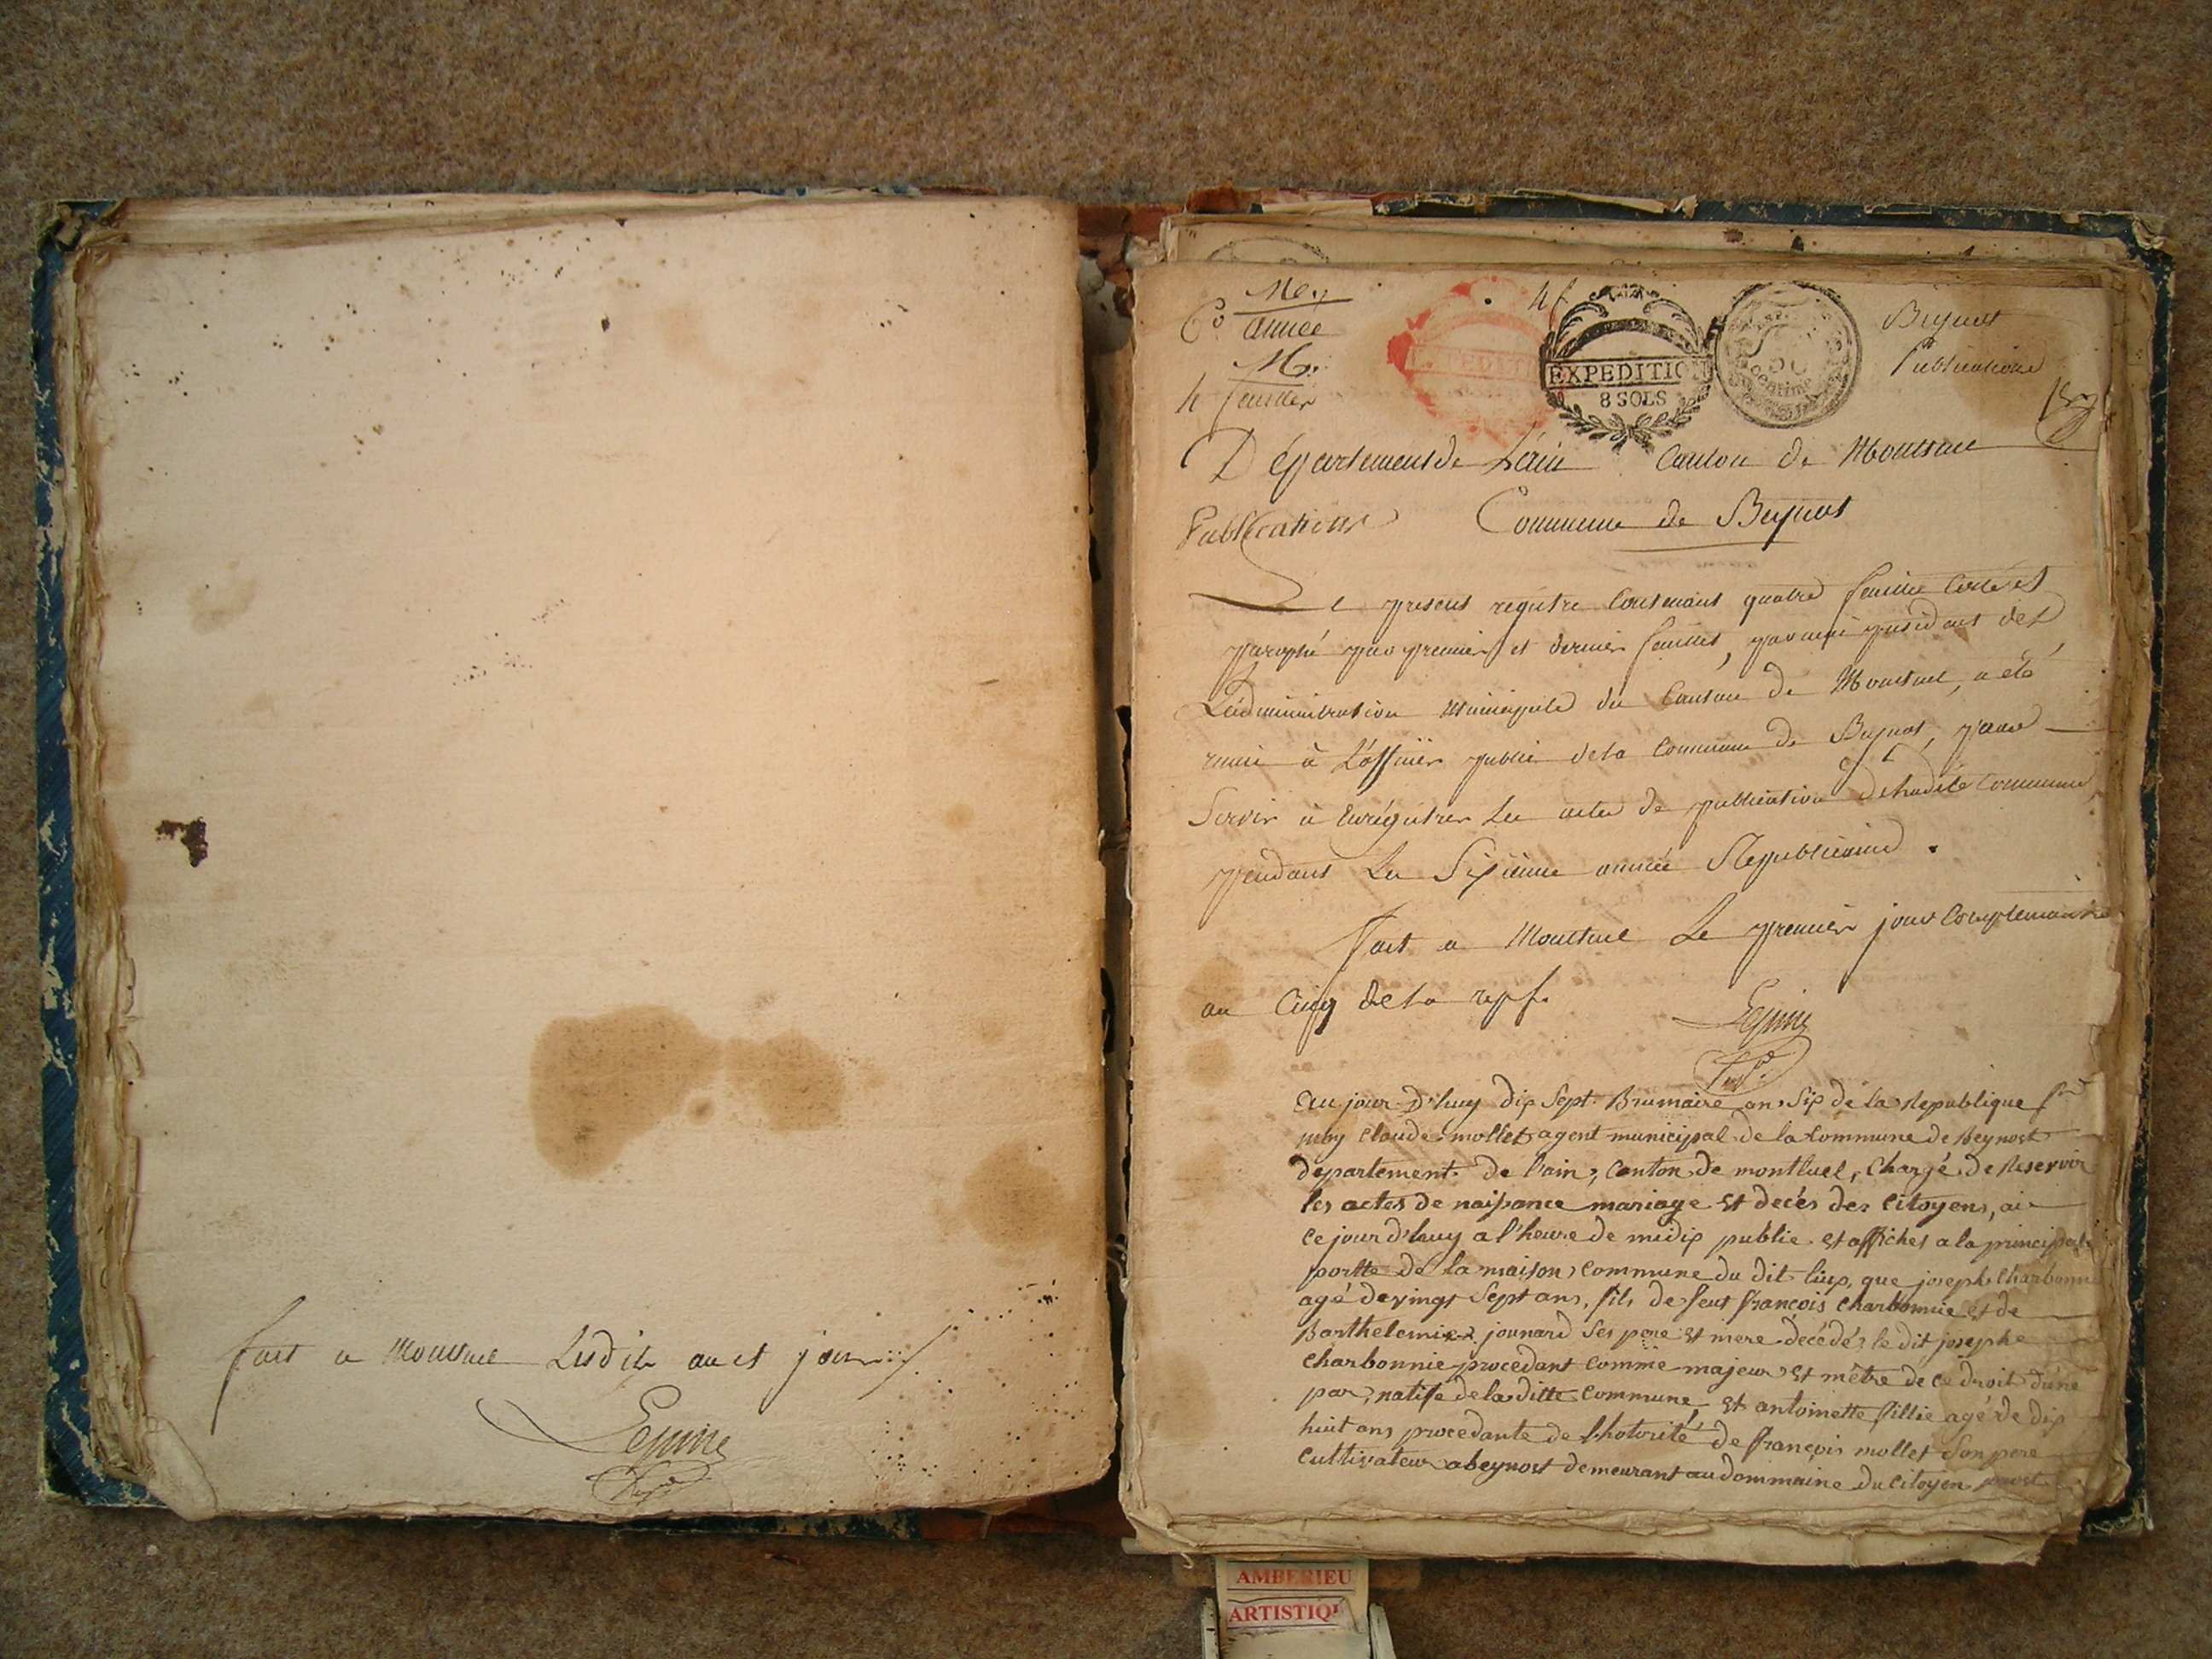 fait a Montluel Lesdits an et jour
Lepine
6e année
4 feuillets
4 f
EXPEDITION
8 SOLS
50
centimes
Beynost
Publications
Département de L'ain Canton de Montluel
Publications Commune de Beynost
Le present registre Contenant quatre feuillets Cotté et
paraphé par premier et dernier feuillet, par moi président de
L'administration Municipale du Canton de Montluel, a été
remis à L'officier public de la Commune de Beynost, pour
Servir à Enrégistrer Les actes de publication de ladite Commune,
pendant La Sixieme année Republicaine.
fait a Montluel Le premier jour Complementaire
an Cinq de la rep. f.
Lepine
Au jour d'huy dix Sept Brumaire an Six de la Republique
claude mollet agent municipal de la Commune de Beynost
département de l'ain, Canton de montluel, Chargé de Reservoir
les actes de naissance mariage et decés des Citoyens, ai
Ce jour d'huy a l'heure de midix publie et affiches a la principale
portte de la maison Commune du dit liux, que joseph Charbonnie
agé de vingt Sept ans, fils de feut françois Charbonnie et de
Barthelemie jounard Ses pere et mere décédés le dit josephe
Charbonnie procedant Comme majeur et mêtre de Ce droit d'une
par, natife de la ditte Commune et antoinette fillie agé de dix
huit ans procedante de l'hotorité de françois mollet Son pere
Cultivateur a beynost demeurant au dommaine du Citoyen
AMBERIEU
ARTISTIQ